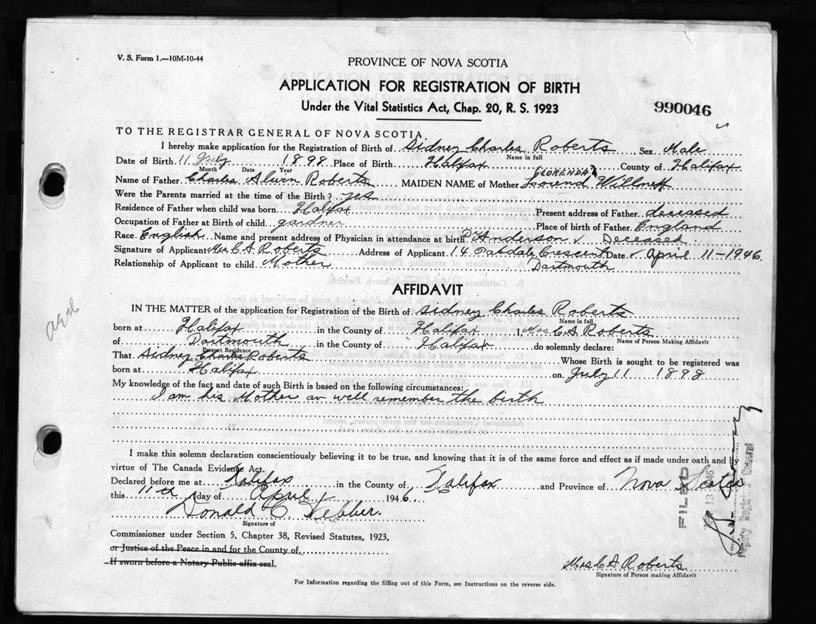 V. S. Form 1.—10M-10-44
PROVINCE OF NOVA SCOTIA
APPLICATION FOR REGISTRATION OF BIRTH
Under the Vital Statistics Act, Chap. 20, R. S. 1923
990046
TO THE REGISTRAR GENERAL OF NOVA SCOTIA.
I hereby make application for the Registration of Birth of Sidney Charles Roberts, Sex Male
Name in full
Date of Birth 11 July 1898 Place of Birth Halifax County of Halifax
Month Date Year
FLORENDA
Name of Father Charles Alvin Roberts MAIDEN NAME of Mother Willneff
Were the Parents married at the time of the Birth? yes
Residence of Father when child was born Halifax Present address of Father deceased
Occupation of Father at Birth of child gardner Place of birth of Father England
Race English Name and present address of Physician in attendance at birth Dr Anderson Deceased
Signature of Applicant Mrs C A Roberts Address of Applicant 14 Oakdale Crescent Date April 11-1946
Relationship of Applicant to child Mother Dartmouth
AFFIDAVIT
IN THE MATTER of the application for Registration of the Birth of Sidney Charles Roberts
Name in full
born at Halifax in the County of Halifax I Mrs C A Roberts
Name of Person Making Affidavit
of Dartmouth in the County of Halifax do solemnly declare:
Present Residence
That Sidney Charles Roberts Whose Birth is sought to be registered was
born at Halifax on July 11 1898
My knowledge of the fact and date of such Birth is based on the following circumstances:
I am his Mother an well remember the birth
I make this solemn declaration conscientiously believing it to be true, and knowing that it is of the same force and effect as if made under oath and by
virtue of The Canada Evidence Act.
Declared before me at Halifax in the County of Halifax and Province of Nova Scotia
this 11th day of April 1946.
Donald C Webber
Signature of
Commissioner under Section 5, Chapter 38, Revised Statutes, 1923,
or Justice of the Peace in and for the County of
If sworn before a Notary Public affix seal.
FILED
Mrs C A Roberts
Signature of Person making Affidavit
For Information regarding the filling out of this Form, see Instructions on the reverse side.